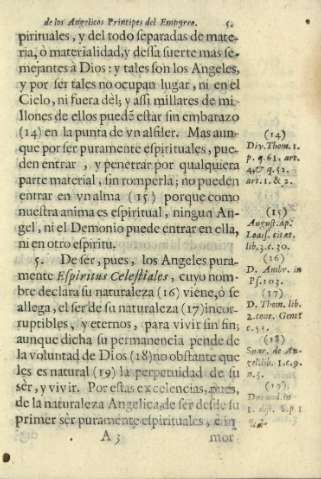 de los Angelicos Principes del Empyreo. 5.
pirituales, y del todo separadas de mate-
ria, ò materialidad, y dessa suerte mas se-
mejantes à Dios: y tales son los Angeles,
y por ser tales no ocupan lugar, ni en el
Cielo, ni fuera dèl; y assi millares de mi-
llones de ellos puedẽ estar sin embarazo
(14) en la punta de vn alfiler. Mas aun-
que por ser puramente espirituales, pue-
den entrar, y penetrar por qualquiera
parte material, sin romperla; no pueden
entrar en vn alma (15) porque como
nuestra anima es espiritual, ningun An-
gel, ni el Demonio puede entrar en ella,
ni en otro espiritu.
5. De ser, pues, los Angeles pura-
mente Espiritus Celestiales, cuyo nom-
bre declara su naturaleza (16) viene, ò se
allega, el ser de su naturaleza (17) incor-
ruptibles, y eternos, para vivir sin fin;
aunque dicha su permanencia pende de
la voluntad de Dios (18) no obstante que
les es natural (19) la perpetuidad de su
ser, y vivir. Por estas excelencias, pues,
de la naturaleza Angelica, de ser desde su
primer ser puramente espirituales, è in
A 3 mor
(14)
Div. Thom. 1.
p. q. 61. art.
4. & q. 52.
art. 1. & 2.
(15)
August. ap.
lib. 3. c. 30.
(16)
D. Ambr. in
Ps. 103.
(17)
D. Thom. lib.
2. cont. Gent
c. 55.
(18)
Suar. de An-
gel. lib. 1. c. 9.
n. 5.
(19)
1. dist. 8. p. 1